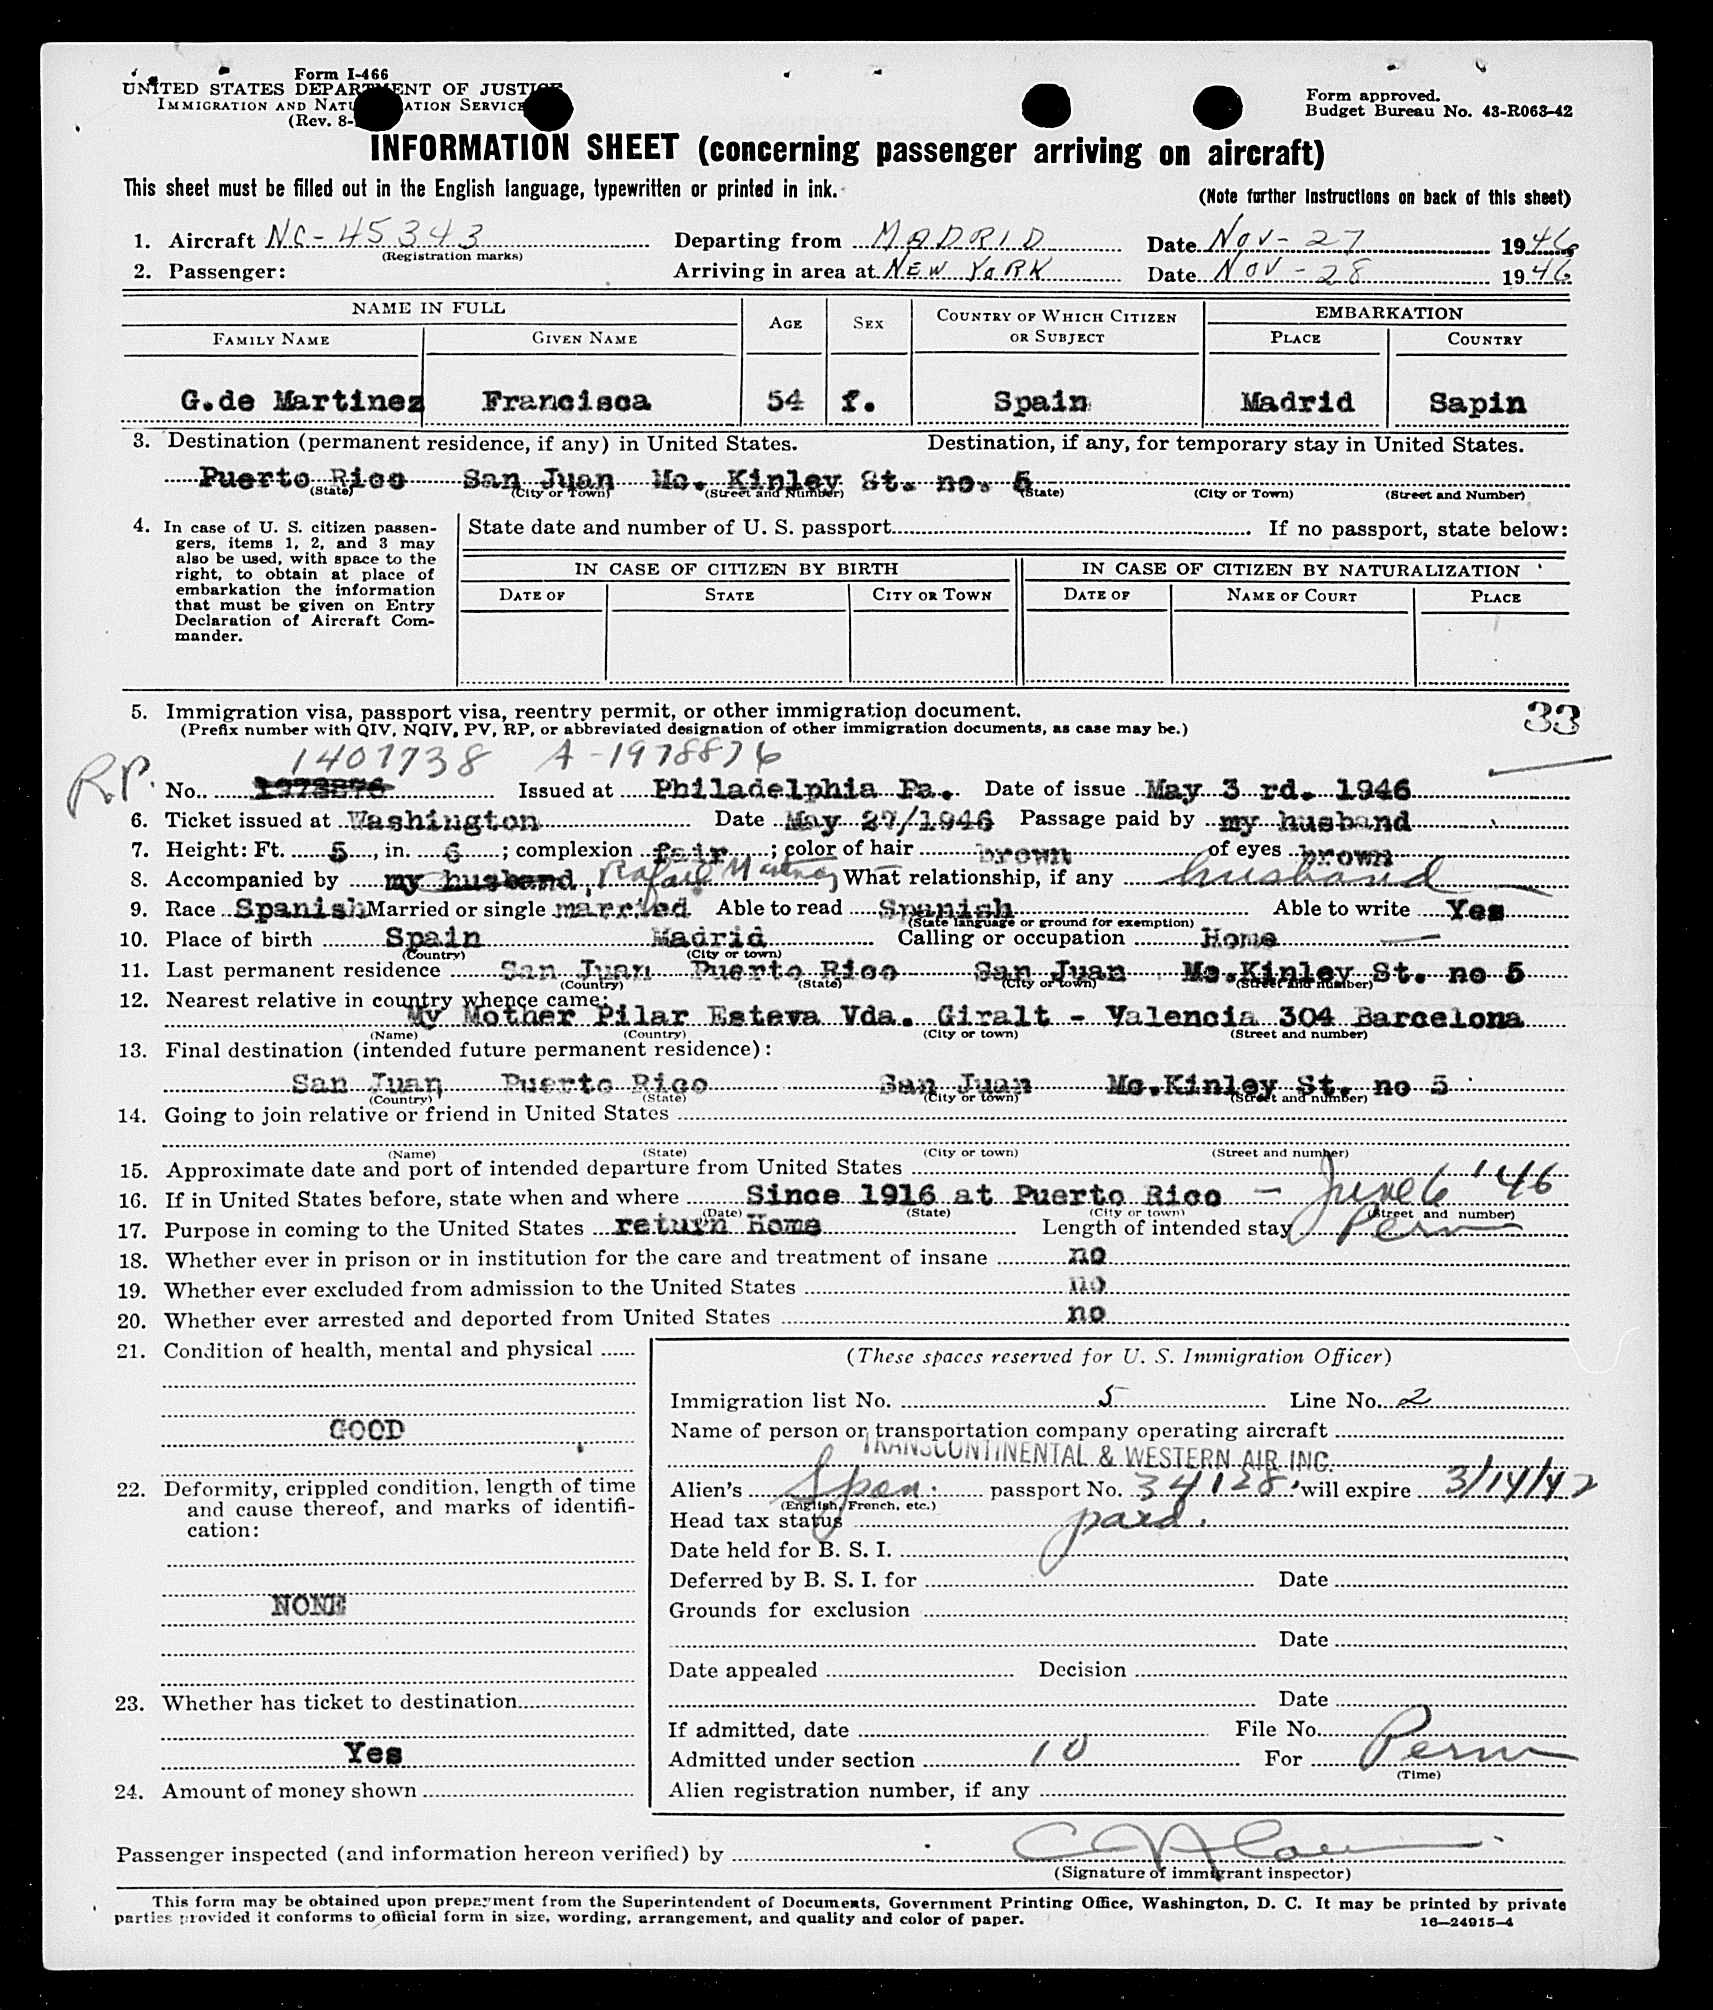 Form I-466
UNITED STATES DEPARTMENT OF JUSTICE
IMMIGRATION AND NATURALIZATION SERVICE
(Rev. 8-
Form approved.
Budget Bureau No. 43-R063-42
INFORMATION SHEET (concerning passenger arriving on aircraft)
This sheet must be filled out in the English language, typewritten or printed in ink.
(Note further instructions on back of this sheet)
1. Aircraft NC-45343 Departing from MADRID Date Nov-27 1946
(Registration marks)
2. Passenger: Arriving in area at NEW YORK Date NOV-28 1946
NAME IN FULL AGE SEX COUNTRY OF WHICH CITIZEN OR SUBJECT EMBARKATION
FAMILY NAME GIVEN NAME PLACE COUNTRY
G.de Martinez Francisca 54 f. Spain Madrid Sapin
3. Destination (permanent residence, if any) in United States. Destination, if any, for temporary stay in United States.
Puerto Rico San Juan Mc. Kinley St. no. 5
(State) (City or Town) (Street and Number) (State) (City or Town) (Street and Number)
4. In case of U. S. citizen passen-
gers, items 1, 2, and 3 may
also be used, with space to the
right, to obtain at place of
embarkation the information
that must be given on Entry
Declaration of Aircraft Com-
mander.
State date and number of U. S. passport If no passport, state below:
IN CASE OF CITIZEN BY BIRTH IN CASE OF CITIZEN BY NATURALIZATION
DATE OF STATE CITY OR TOWN DATE OF NAME OF COURT PLACE
5. Immigration visa, passport visa, reentry permit, or other immigration document.
(Prefix number with QIV, NQIV, PV, RP, or abbreviated designation of other immigration documents, as case may be.)
33
1407738 A-1978876
RP. No. 1978876 Issued at Philadelphia Pa. Date of issue May 3 rd. 1946
6. Ticket issued at Washington Date May 27/1946 Passage paid by my husband
7. Height: Ft. 5, in. 6; complexion fair; color of hair brown of eyes brown
8. Accompanied by my husband, Rafael Martinez What relationship, if any husband
9. Race Spanish Married or single married Able to read Spanish Able to write Yes
(State language or ground for exemption)
10. Place of birth Spain Madrid Calling or occupation Home
(Country) (City or town)
11. Last permanent residence San Juan Puerto Rico San Juan Mc.Kinley St. no 5
(Country) (State) (City or town) (Street and number)
12. Nearest relative in country whence came:
My Mother Pilar Esteva Vda. Giralt - Valencia 304 Barcelona
(Name) (Country) (City or town) (Street and number)
13. Final destination (intended future permanent residence):
San Juan Puerto Rico San Juan Mc.Kinley St. no 5
(Country) (State) (City or town) (Street and number)
14. Going to join relative or friend in United States
(Name) (State) (City or town) (Street and number)
15. Approximate date and port of intended departure from United States
16. If in United States before, state when and where Since 1916 at Puerto Rico - June 6 '46
(Date) (State) (City or town) (Street and number)
17. Purpose in coming to the United States return Home Length of intended stay Perm
18. Whether ever in prison or in institution for the care and treatment of insane no
19. Whether ever excluded from admission to the United States no
20. Whether ever arrested and deported from United States no
21. Condition of health, mental and physical
GOOD
22. Deformity, crippled condition, length of time
and cause thereof, and marks of identifi-
cation:
NONE
23. Whether has ticket to destination
Yes
24. Amount of money shown
(These spaces reserved for U. S. Immigration Officer)
Immigration list No. 5 Line No. 2
Name of person or transportation company operating aircraft
TRANSCONTINENTAL & WESTERN AIR INC.
Alien's Span. passport No. 34128 will expire 3/14/42
(English, French, etc.)
Head tax status paid.
Date held for B. S. I.
Deferred by B. S. I. for Date
Grounds for exclusion
Date
Date appealed Decision
Date
If admitted, date File No.
Admitted under section 10 For Perm
(Time)
Alien registration number, if any
Passenger inspected (and information hereon verified) by
(Signature of immigrant inspector)
This form may be obtained upon prepayment from the Superintendent of Documents, Government Printing Office, Washington, D. C. It may be printed by private
parties provided it conforms to official form in size, wording, arrangement, and quality and color of paper.
16—24915-4